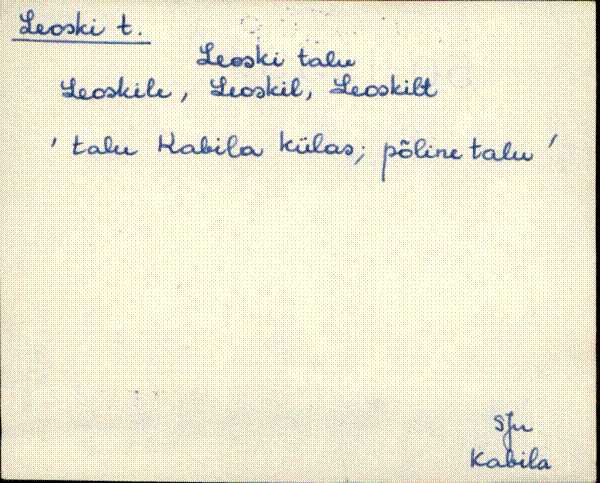 Leoski t.
Leoski talu
Leoskile, Leoskil, Leoskilt
' talu Kabila külas; põline talu '
SJn
Kabila